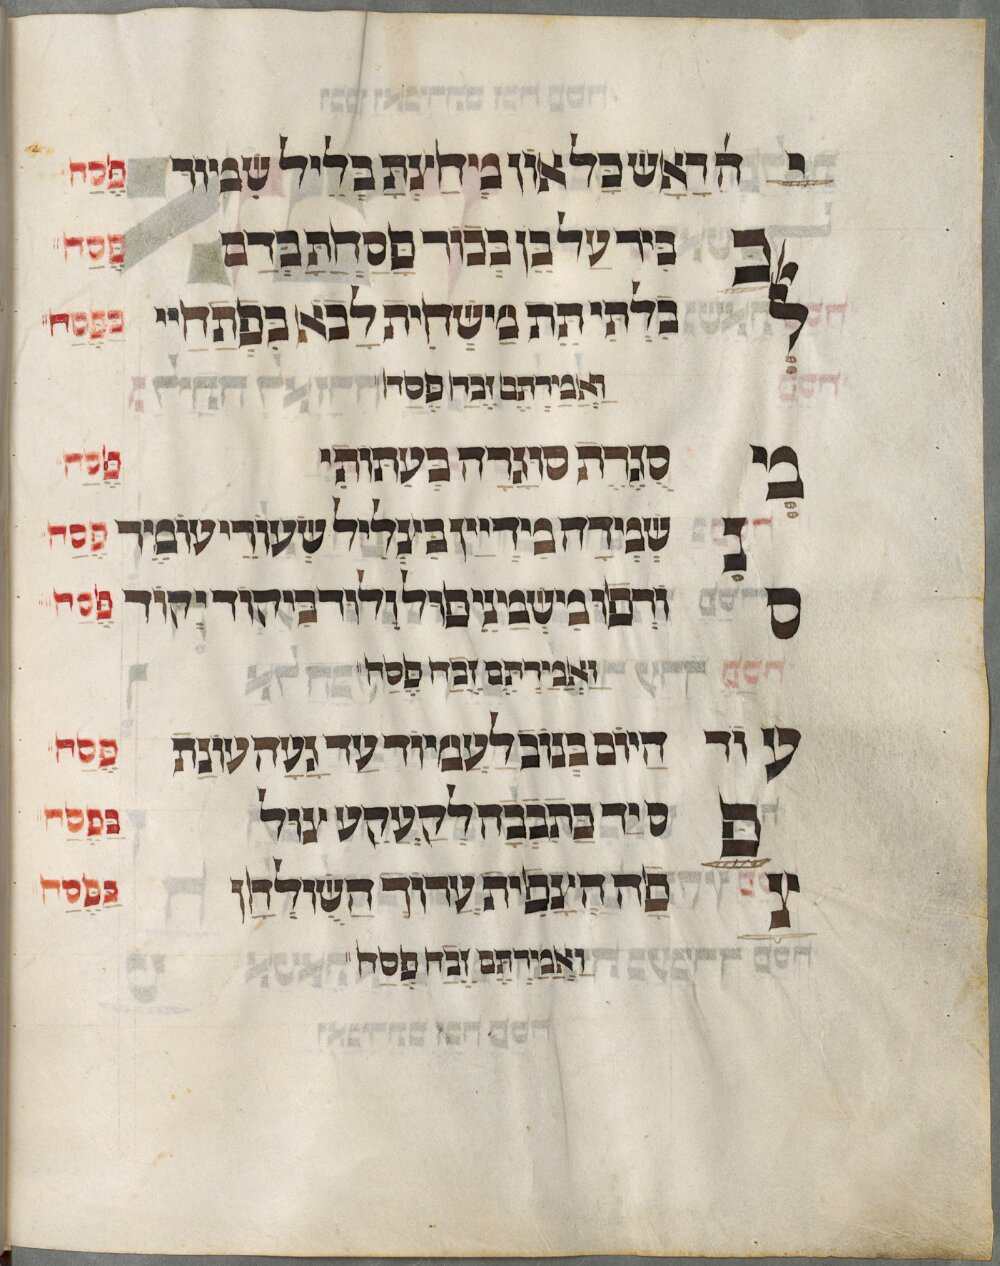 יה ראש כל און מיחיצת בליל שמיור פסח
כביר על בן בכור פסחת בדם פסח
לבלתי תת מישחית לבא בפתחיי בפסח
ואמירתם זבח פסח
מיסגרת סוגרה בעתותי פסח
נשמידה מידיין ביצליל שעורי עומיר פסח
סורפו משמיני פול ולוד ביקוד יקוד פסח
ואמירתם זבח פסח
עוד היום בנוב לעמיוד עד געה עונת פסח
פס יד כתבבה לקעקע צול בפסח
צפה הצפית ערוך השולחן בפסח
ואמירתם זבח פסח